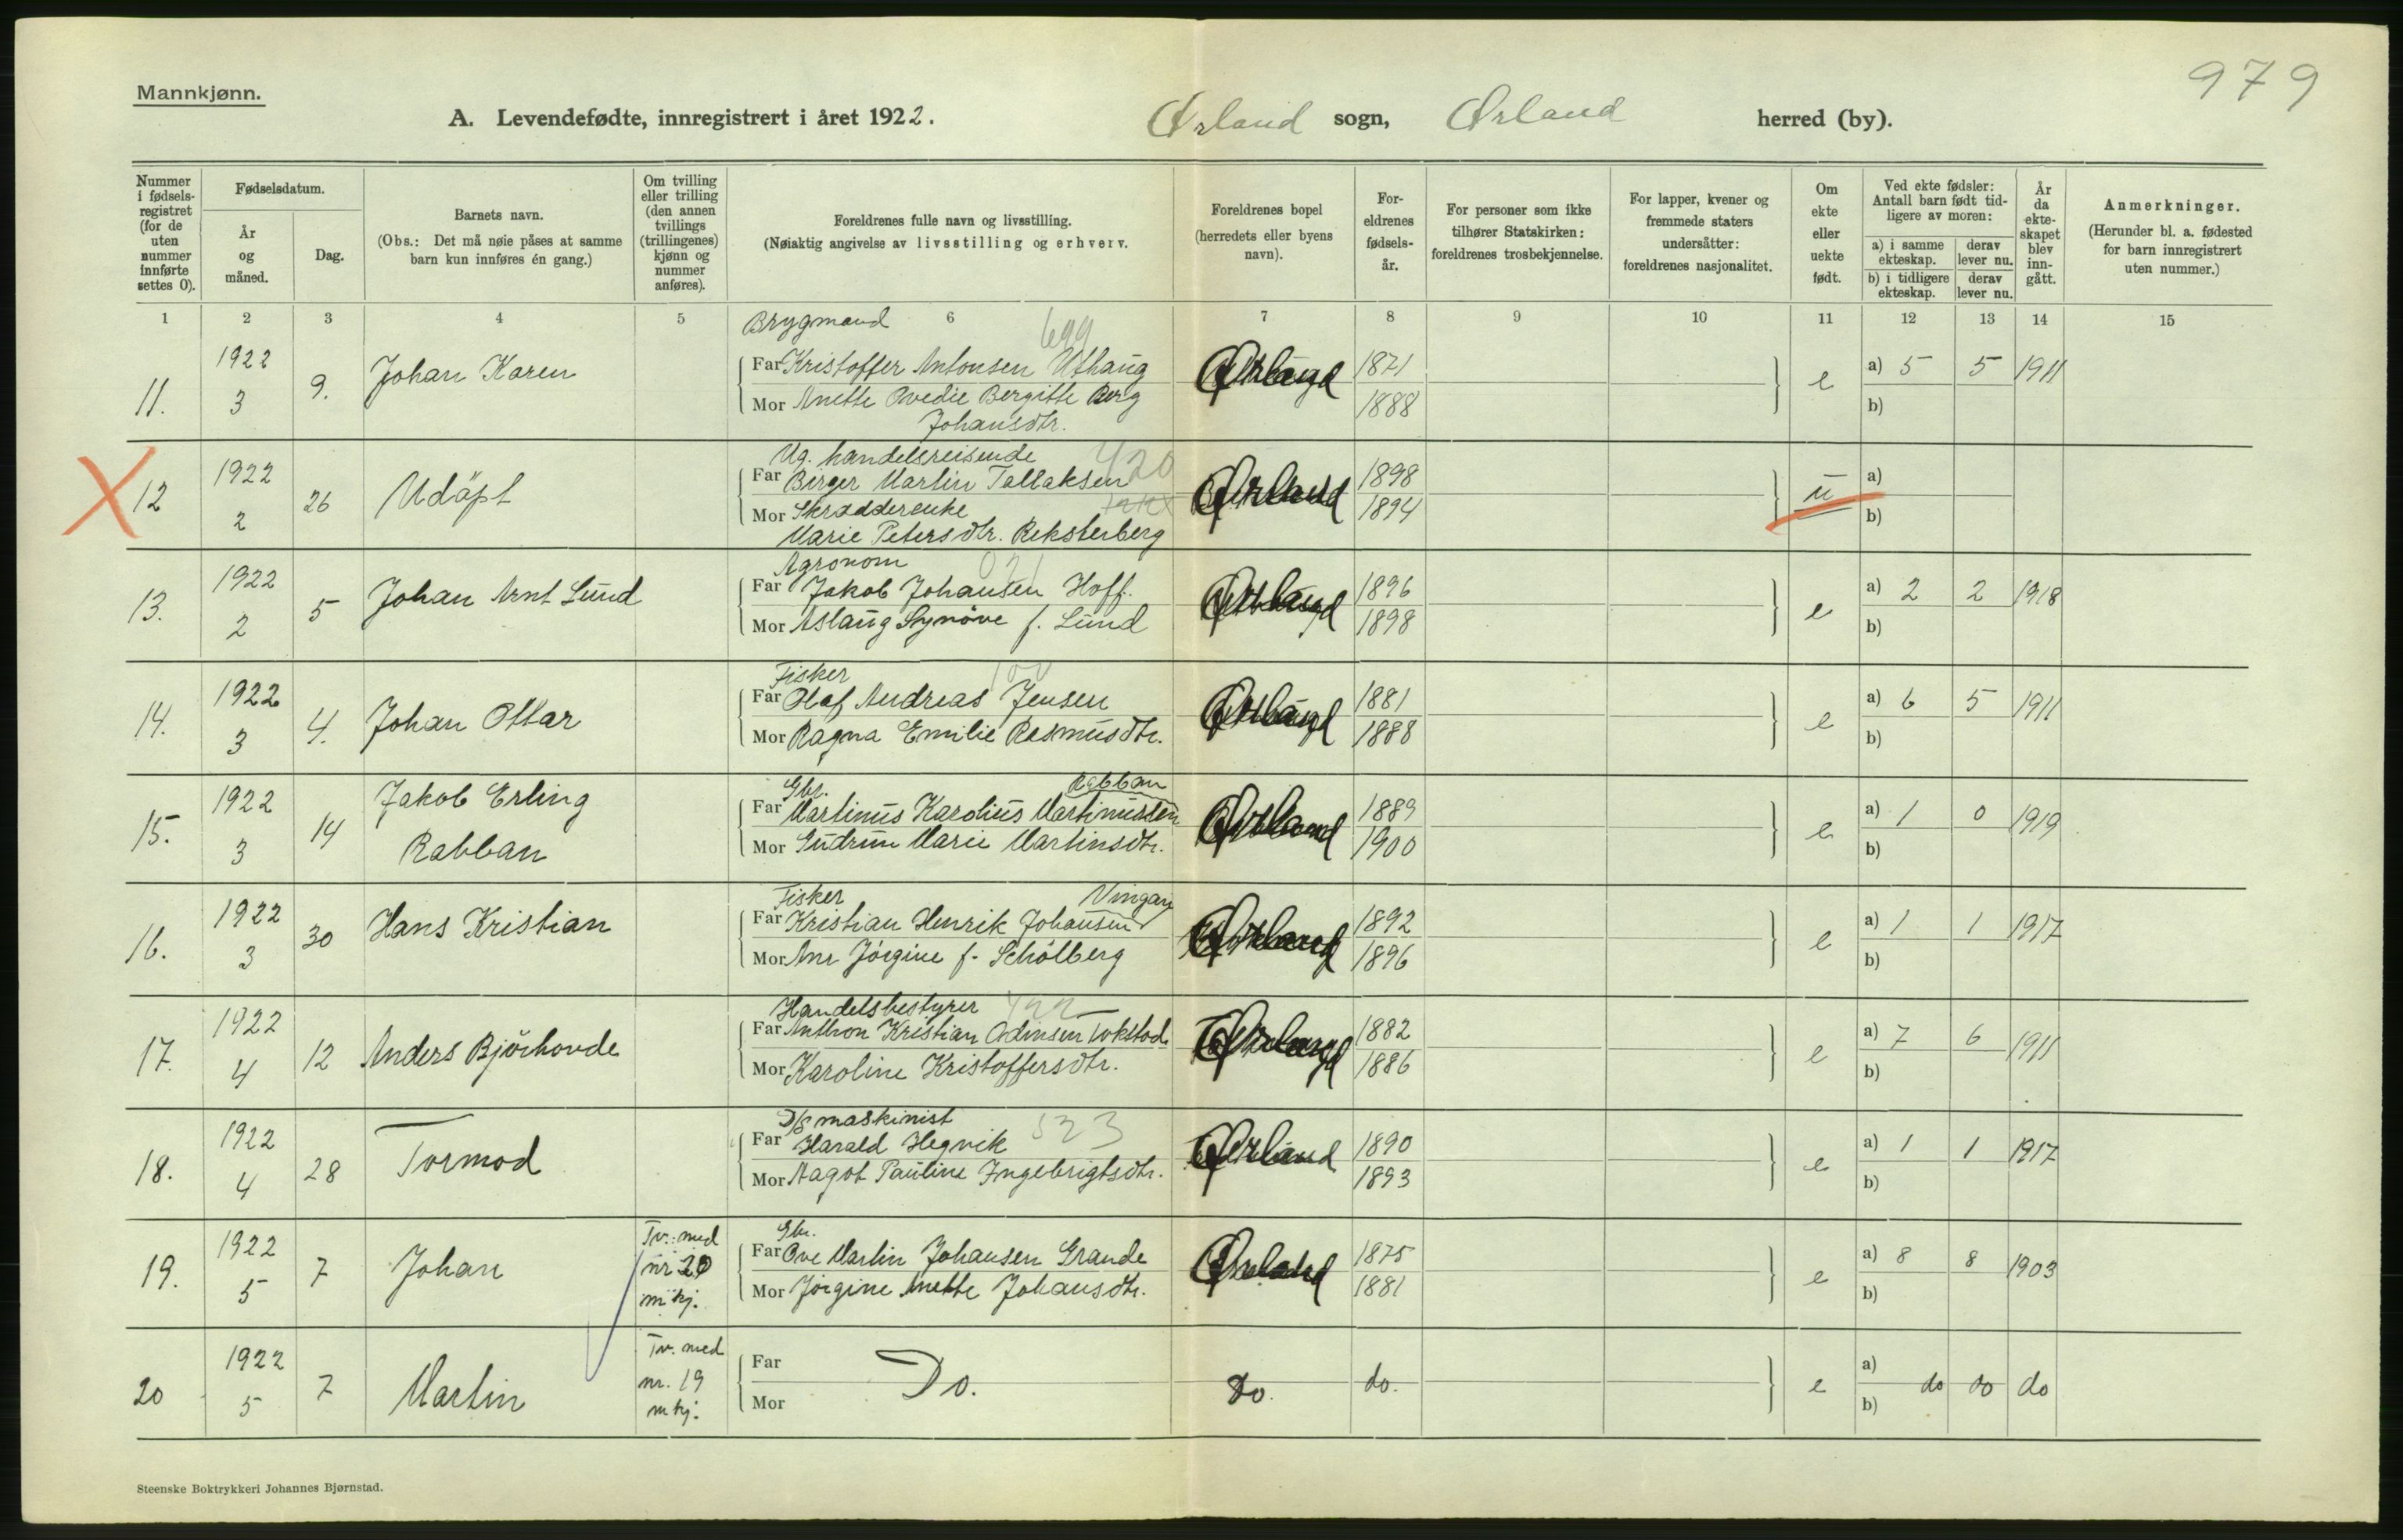 979
Mannkjønn.
A. Levendefødte, innregistrert i året 1922. Ørland sogn, Ørland herred (by).
Nummer i fødsels-registret (for de uten nummer innførte settes 0).
Fødselsdatum.
År og måned.
Dag.
Barnets navn.
(Obs.: Det må nøie påses at samme barn kun innføres én gang.)
Om tvilling eller trilling (den annen tvillings (trillingenes) kjønn og nummer anføres).
Foreldrenes fulle navn og livsstilling.
(Nøiaktig angivelse av livsstilling og erhverv.
Foreldrenes bopel (herredets eller byens navn).
For-eldrenes fødsels-år.
For personer som ikke tilhører Statskirken: foreldrenes trosbekjennelse.
For lapper, kvener og fremmede staters undersåtter: foreldrenes nasjonalitet.
Om ekte eller uekte født.
Ved ekte fødsler: Antall barn født tid-ligere av moren:
a) i samme ekteskap.
derav lever nu.
b) i tidligere ekteskap.
derav lever nu.
År da ekte-skapet blev inn-gått.
Anmerkninger.
(Herunder bl. a. fødested for barn innregistrert uten nummer.)
1 2 3 4 5 6 7 8 9 10 11 12 13 14 15
Brygmand 699
11. 1922 3 9. Johan Karen
Far Kristoffer Antonsen Uthaug Ørland 1871 e a) 5 5 1911
Mor Anette Ovedie Bergitte Berg 1888 b)
Johansdtr.
X 12 1922 2 26 Udöpt
Ug. handelsreisende 420
Far Birger Martin Tallaksen Ørland 1898 u a)
Mor Skrædderenke 1894 b)
Marie Petersdtr. Reksterberg
13. 1922 2 5 Johan Arnt Lund
Agronom 021
Far Jakob Johansen Hoff. Ørland 1896 e a) 2 2 1918
Mor Aslaug Synöve f. Lund 1898 b)
14. 1922 3 4. Johan Ottar
Fisker
Far Olaf Andreas Jensen Ørland 1881 e a) 6 5 1911
Mor Ragna Emilie Rasmusdtr. 1888 b)
15. 1922 3 14 Jakob Erling Rabban
Gbr. Rabban
Far Martinus Karolius Martinussen Ørland 1889 e a) 1 0 1919
Mor Gudrun Marie Martinsdtr. 1900 b)
16. 1922 3 30 Hans Kristian
Fisker Vingan
Far Kristian Henrik Johansen Ørland 1892 e a) 1 1 1917
Mor Ane Jörgine f. Schölberg 1896 b)
17. 1922 4 12 Anders Björhovde
Handelsbestyrer
Far Anthon Kristian Odinsen Tokstad Ørland 1882 e a) 7 6 1911
Mor Karoline Kristoffersdtr. 1886 b)
18. 1922 4 28 Tormod
D/S maskinist 523
Far Harald Hegvik Ørland 1890 e a) 1 1 1917
Mor Magot Pauline Ingebrigtsdtr. 1893 b)
19. 1922 5 7 Johan Tv. med nr 20 m kj.
Gbr.
Far Ove Martin Johansen Grande Ørland 1875 e a) 8 8 1903
Mor Jörgine Anette Johansdtr. 1881 b)
20 1922 5 7 Martin Tv. med nr. 19 m kj.
Far Do. Do. do. e a) do do do
Mor b)
Steenske Boktrykkeri Johannes Bjørnstad.